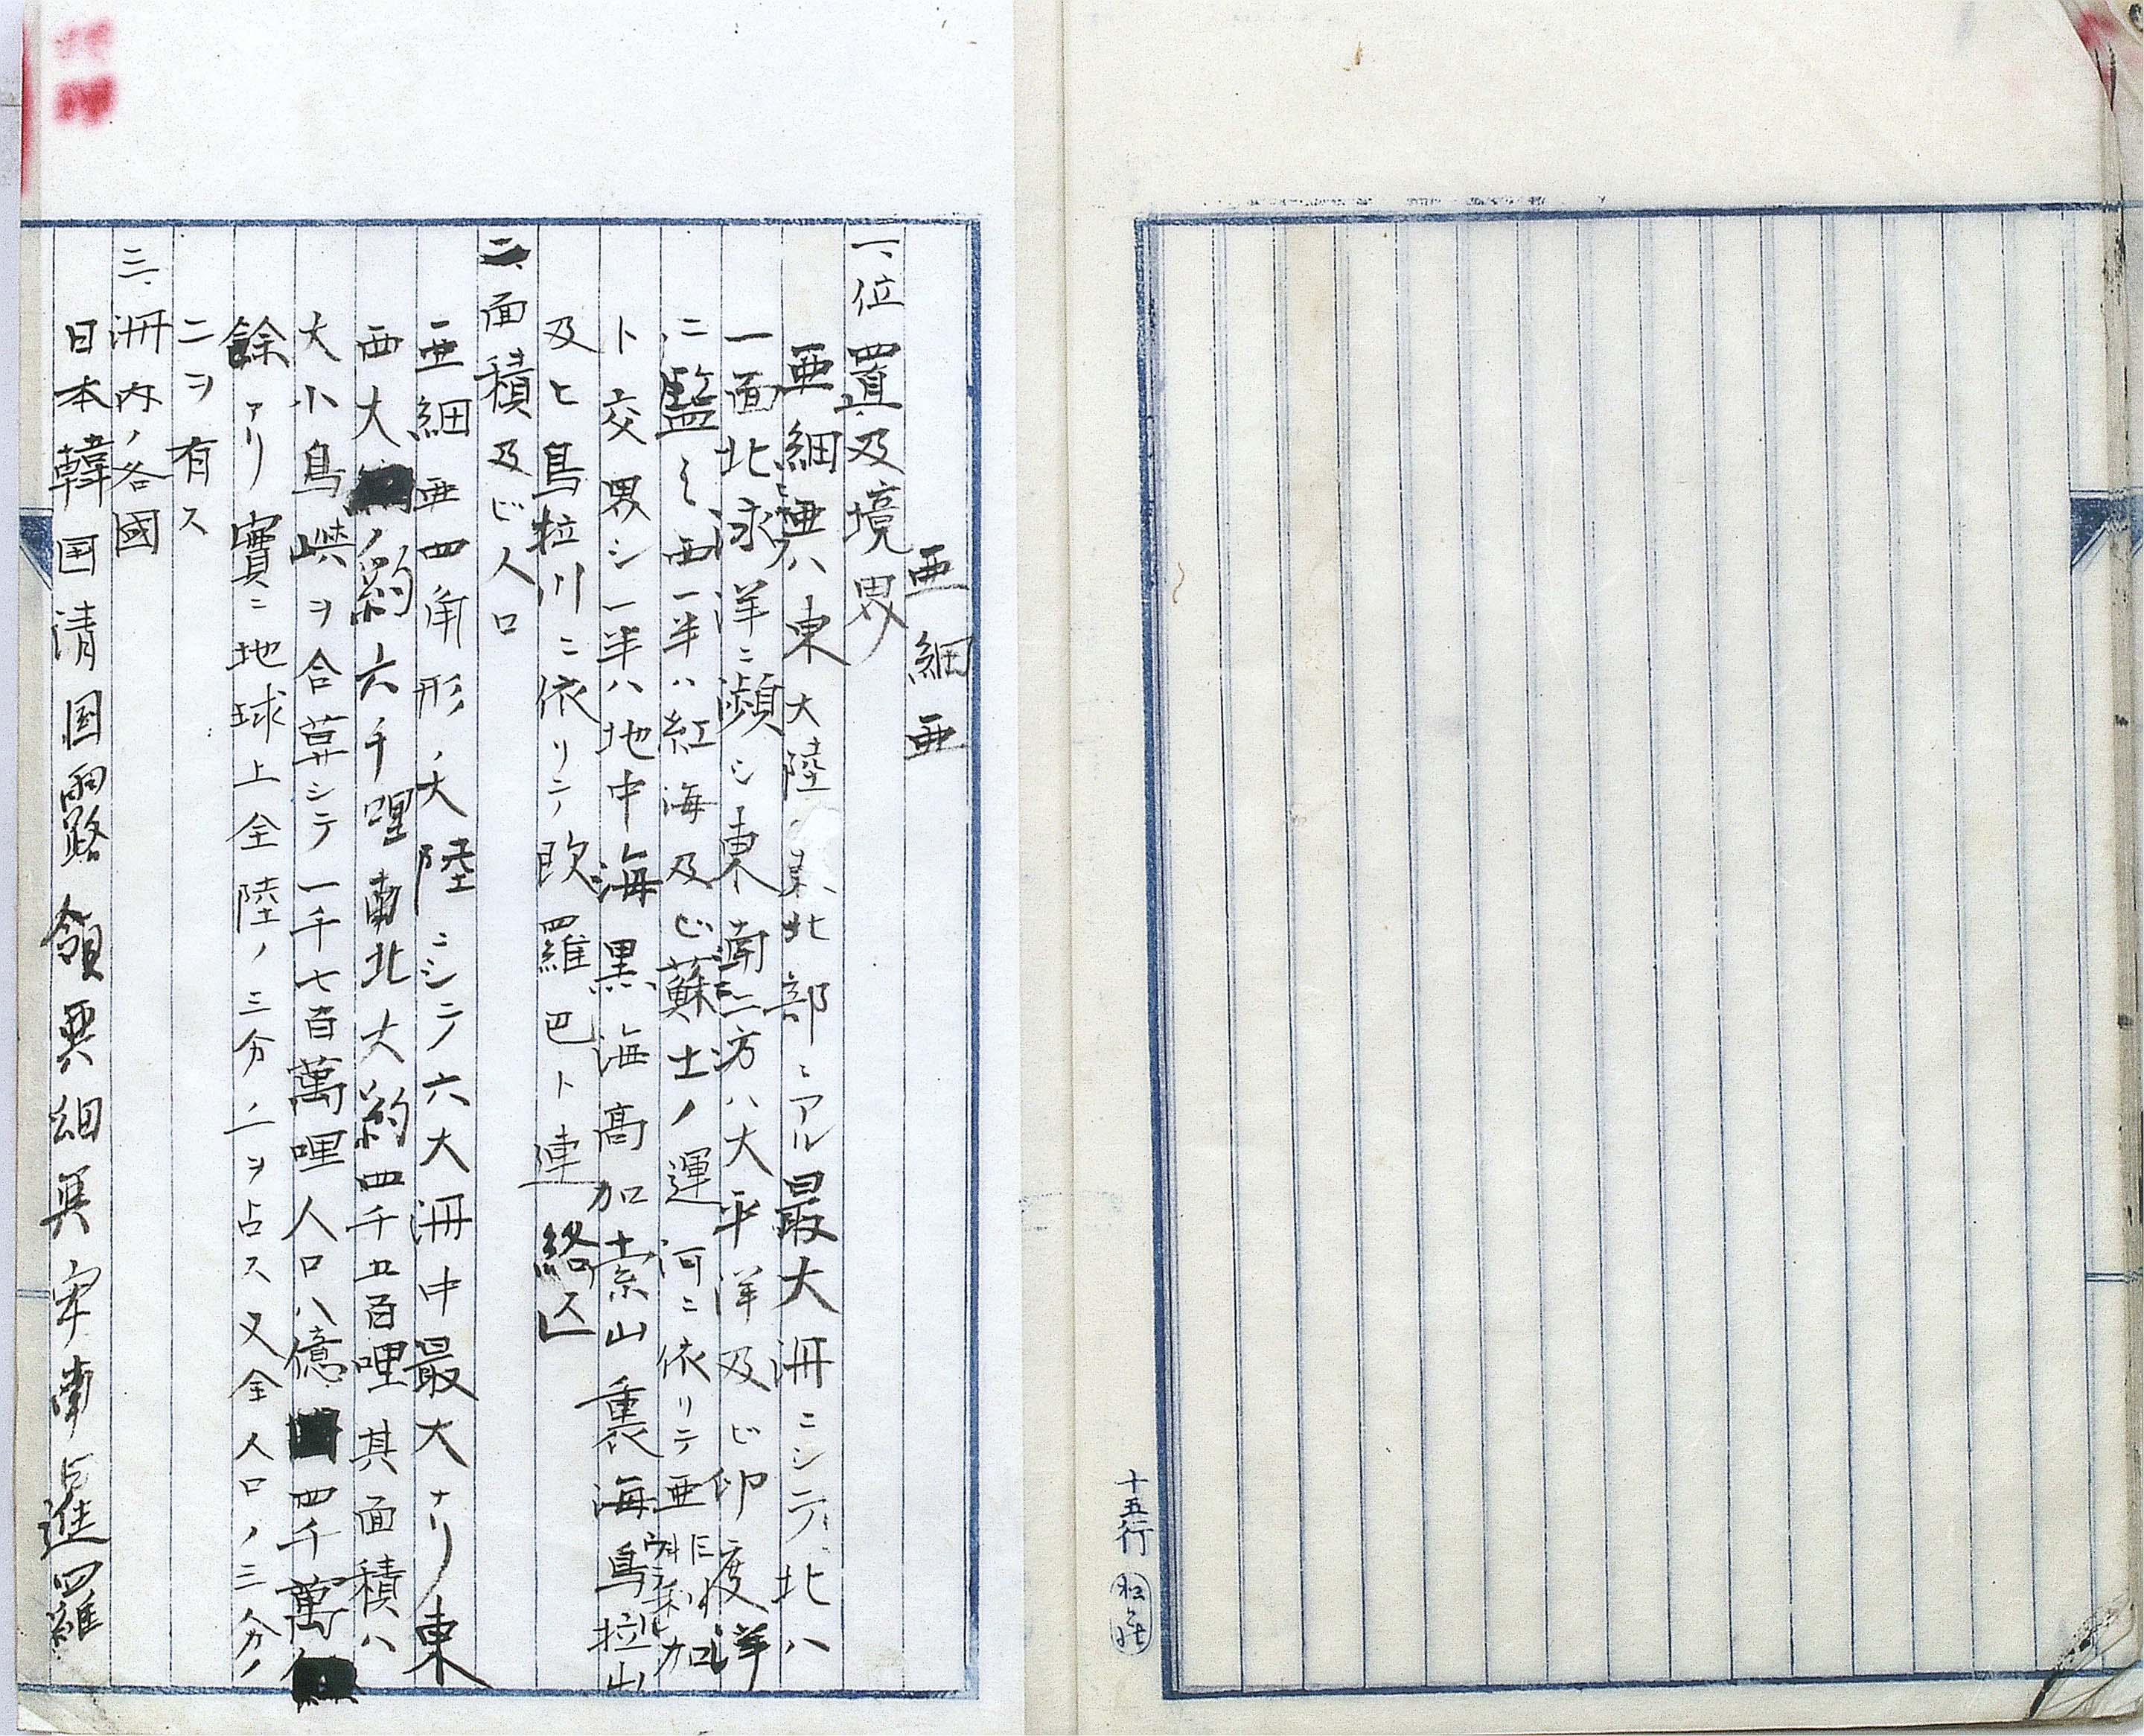 十五行
亜細亜
一、位置及境界
亜細亜ハ東大陸ノ東北部ニアル最大洲ニシテ北ハ
一面北氷洋ニ瀕シ東南二方ハ大平洋及ビ印度洋
ニ監シ西一半ハ紅海及ビ蘇士ノ運河ニ依リテ亜非利加
ト交界シ一半ハ地中海黒海高加索山裏海烏拉山
及ヒ烏拉川ニ依リテ欧羅巴ト連絡ス
二、面積及ビ人口
亜細亜四角形ノ大陸ニシテ六大洲中最大ナリ東
西大約六千哩南北大約四千五百哩其面積ハ
大小島嶼ヲ合算シテ一千七百萬哩人口八億四千萬
餘アリ實ニ地球上全陸ノ三分ノ一ヲ占ス又全人口ノ三分ノ
二ヲ有ス
三、洲内ノ各國
日本韓国清国露領亜細亜安南暹羅